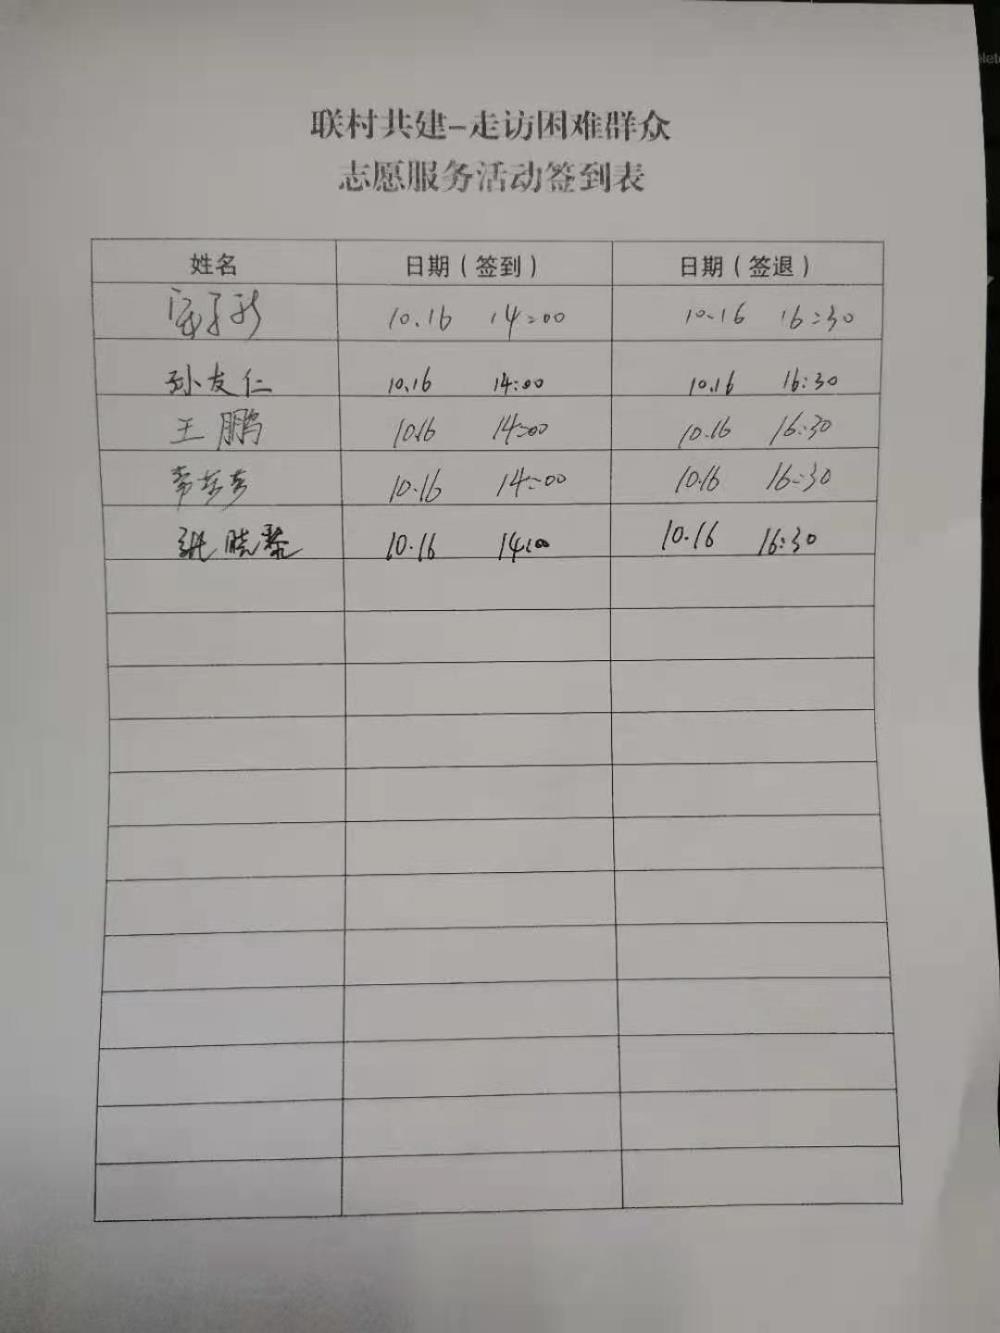 联村共建-走访困难群众
志愿服务活动签到表
姓名 日期（签到） 日期（签退）
10.16 14:00 10.16 16:30
孙友仁 10.16 14:00 10.16 16:30
王鹏 10.16 14:00 10.16 16:30
10.16 14:00 10.16 16:30
张晓 10.16 14:00 10.16 16:30